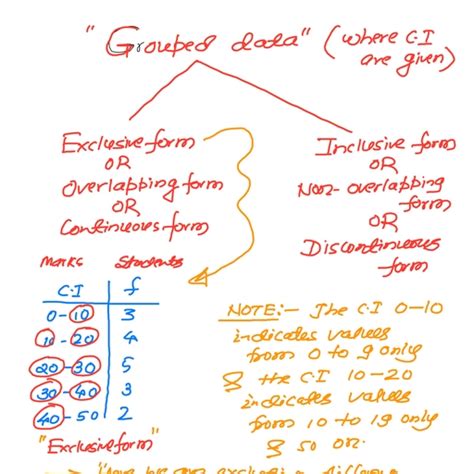 "Grouped data" (where C.I
are given)
Exclusive form
OR
Overlapping form
OR
Continuous form
Inclusive form
OR
Non-overlapping
form
OR
Discontinuous
form
Marks Students
C.I f
0-10 3
10-20 4
20-30 5
30-40 3
40-50 2
"Exclusive form"
NOTE:- The C.I 0-10
indicates values
from 0 to 9 only
& the C.I 10-20
indicates values
from 10 to 19 only
& so on.